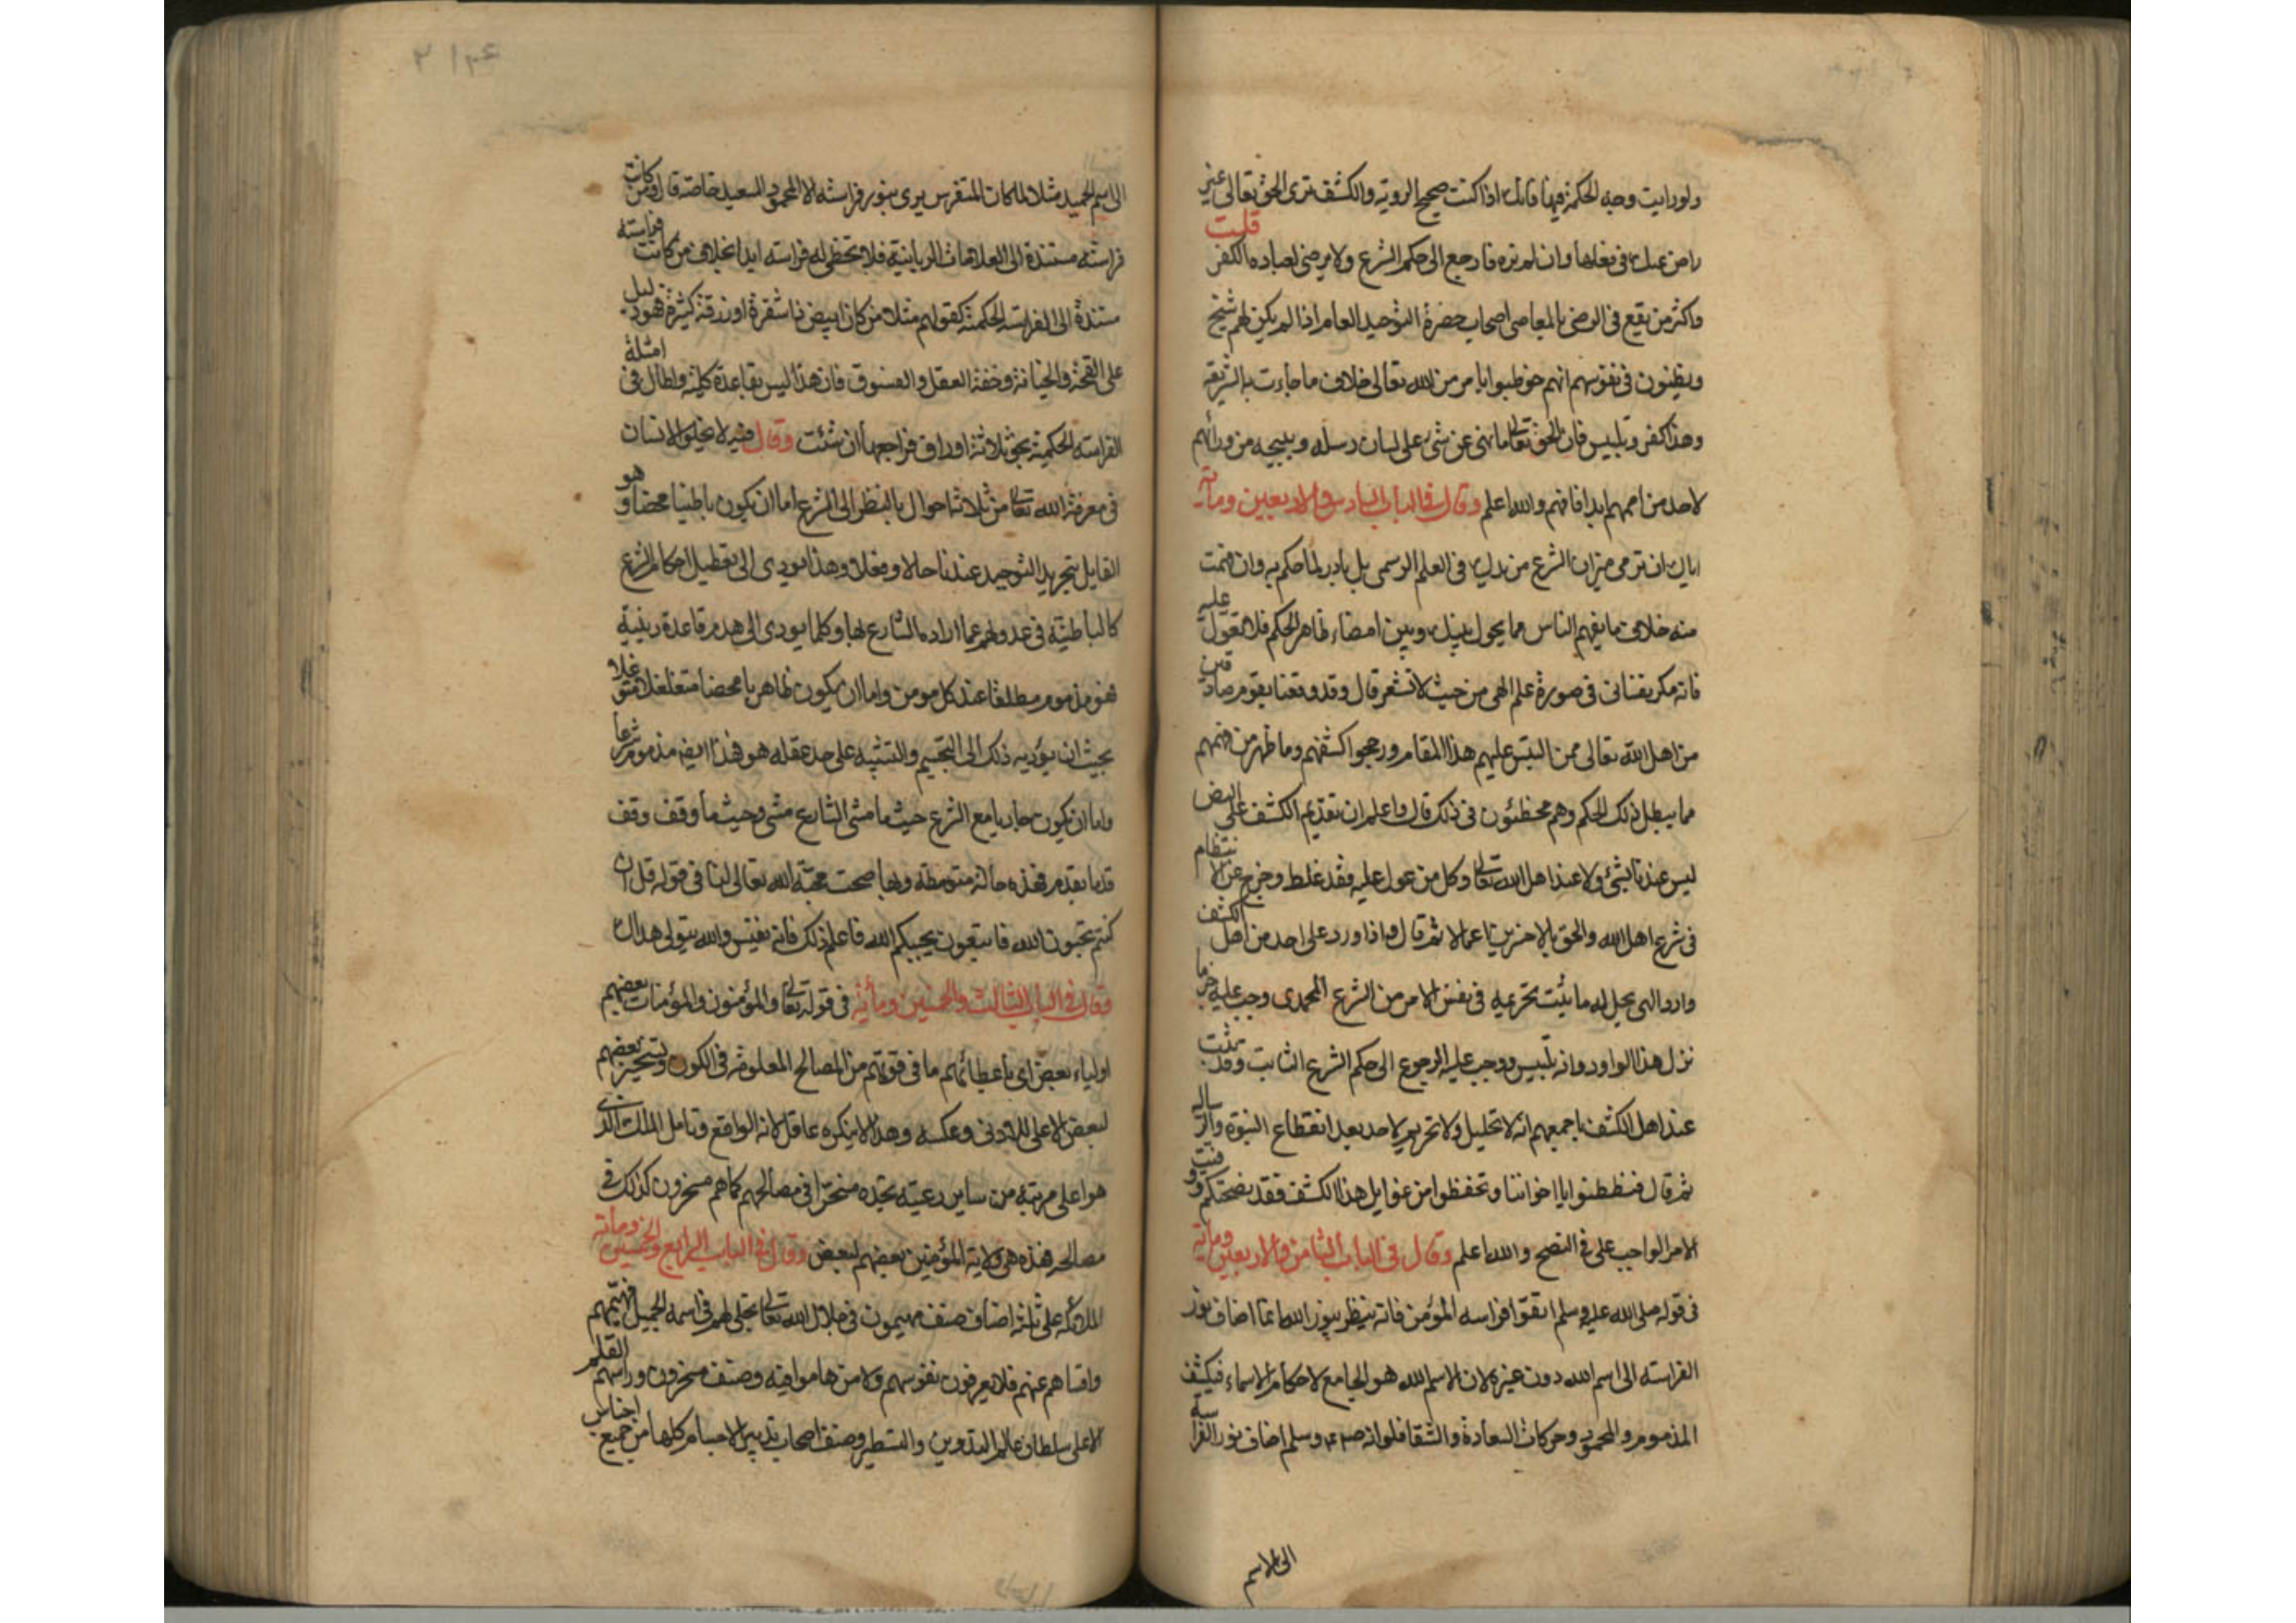 ولو رايت وجه الحكمة فيها فانك اذا كنت صحيح الروية والكشف ترى الحق تعالى غير
راض عنك فى فعلها وان لم تره فارجع الى حكم الشرع ولا يرضى لعباده الكفر قلت
واكثر من يقع فى الرضى بالمعاصى اصحاب حضرة التوحيد العام اذا لم يكن لهم شيخ
ويظنون فى نفوسهم انهم خوطبوا بامر من الله تعالى خلاف ما جاءت به الشريعة
وهذا كفر وتلبيس فان الحق تعالى ما نهى عن شئ على لسان رسله ويبيحه من ورائهم
لاحد من اممهم ابدا فافهم والله اعلم وقال فى الباب السادس والاربعين ومأته
اياك ان ترمى ميزان الشرع من يدك فى العلم الرسمى بل بادر لما حكم به وان فهمت
منه خلاف ما يفهم الناس مما يحول بينك وبين امضاء ظاهر الحكم فلا تعول عليه
فانه مكر نفسانى فى صورة علم الهى من حيث لا تشعر قال وقد وقعنا بقوم صادقين
من اهل الله تعالى ممن التبس عليهم هذا المقام ورجحوا كشفهم وما ظهر من فهمهم
مما يبطل ذلك الحكم وهم مخطئون فى ذلك قال واعلم ان تقديم الكشف على النص
ليس عندنا بشئ ولا عند اهل الله تعالى وكل من عول عليه فقد غلط وخرج عن الانتظام
فى شرع اهل الله والحق بالاخسرين اعمالا ثم قال واذا ورد على احد من اهل الكشف
وارد الهى يحل له ما ثبت تحريمه فى نفس الامر من الشرع المحمدى وجب عليه جزما
نزل هذا الوارد وانه تلبيس ووجب عليه الرجوع الى حكم الشرع الثابت وقد ثبت
عند اهل الكشف باجمعهم انه لا تحليل ولا تحريم لاحد بعد انقطاع النبوة والرساله
ثم قال فتفطنوا يا اخواننا وتحفظوا من غوايل هذا الكشف فقد نصحتكم ووفيت
الامر الواجب على فى النصح والله اعلم وقال فى الباب الثامن والاربعين ومأته
فى قوله صلى الله عليه وسلم اتقوا فراسه المؤمن فانه ينظر بنور الله انما اضاف نور
الفراسته الى اسم الله دون غيره لان الاسم الله هو الجامع لاحكام الاسماء فيكشف
المذموم والمحمود وحركات السعادة والشقا فلو انه صلعم وسلم اضاف نور الفراسة
الى الاسم
الى اسم الحميد مثلا لما كان المتفرس يرى بنور فراسته الا المحمود السعيد خاصة قال ومن كانت
فراسته مستندة الى العلامات الربانية فلا تخطى له فراسته ابدا بخلاف من كانت فراسته
مستندة الى الفراسته الحكمية كقولهم مثلا من كان ابيض ذا شقرة او زرقة كثيرة فهو دليل
على القحة والخيانة وخفة العقل والفسوق فان هذا ليس بقاعدة كلية واطال فى امثلة
الفراسته الحكمية نحو ثلاثة اوراق فراجعها ان شئت وقال فيه لا يخلو الانسان
فى معرفة الله تعالى من ثلاثة احوال بالنظر الى الشرع اما ان يكون باطنيا محضا وهو
القايل بتجريد التوحيد عندنا حالا وفعلا وهذا يودى الى تعطيل احكام الشرع
كالباطنية فى عدولهم عما اراده الشارع لها وكلما يودى الى هدم قاعدة دينية
فهو مذموم مطلقا عند كل مومن واما ان يكون ظاهريا محضا متغلغلا متوغلا
بحيث ان يؤديه ذلك الى التجسيم والتشبيه على حد عقله هو فهذا ايض مذموم شرعا
واما ان يكون جاريا مع الشرع حيث ما مشى الشارع مشى وحيث ما وقف وقف
قدما بقدم فهذه حالة متوسطة وبها صحت محبة الله تعالى لنا فى قوله قل ان
كنتم تحبون الله فاتبعون يحببكم الله فاعلم ذلك فانه نفيس والله يتولى هداك
وقال فى الباب الثالث والخمسين ومأيه فى قوله تعالى والمؤمنون والمؤمنات بعضهم
اولياء بعض اى باعطائهم ما فى قوتهم من المصالح المعلومة فى الكون وتسخير بعضهم
لبعض الاعلى للادنى وعكسه وهذا لا ينكره عاقل لانه الواقع وتامل الملك الذى
هو اعلى مرتبة من ساير رعيته تجده مسخرا فى مصالحهم كما هم مسخرون كذلك فى
مصالحه فهذه هى ولاية المؤمنين بعضهم لبعض وقال فى الباب الرابع والخمسين ومأته
الملائكة على ثلثة اصناف صنف مهيمون فى جلال الله تعالى تجلى لهم فى اسمه الجميل فهيمهم
وافناهم عنهم فلا يعرفون نفوسهم ولا من هاموا فيه وصنف مسخرون وراسهم القلم
الاعلى سلطان عالم التدوين والتسطير وصنف اصحاب تدبير الاجسام كلها من جميع اجناس